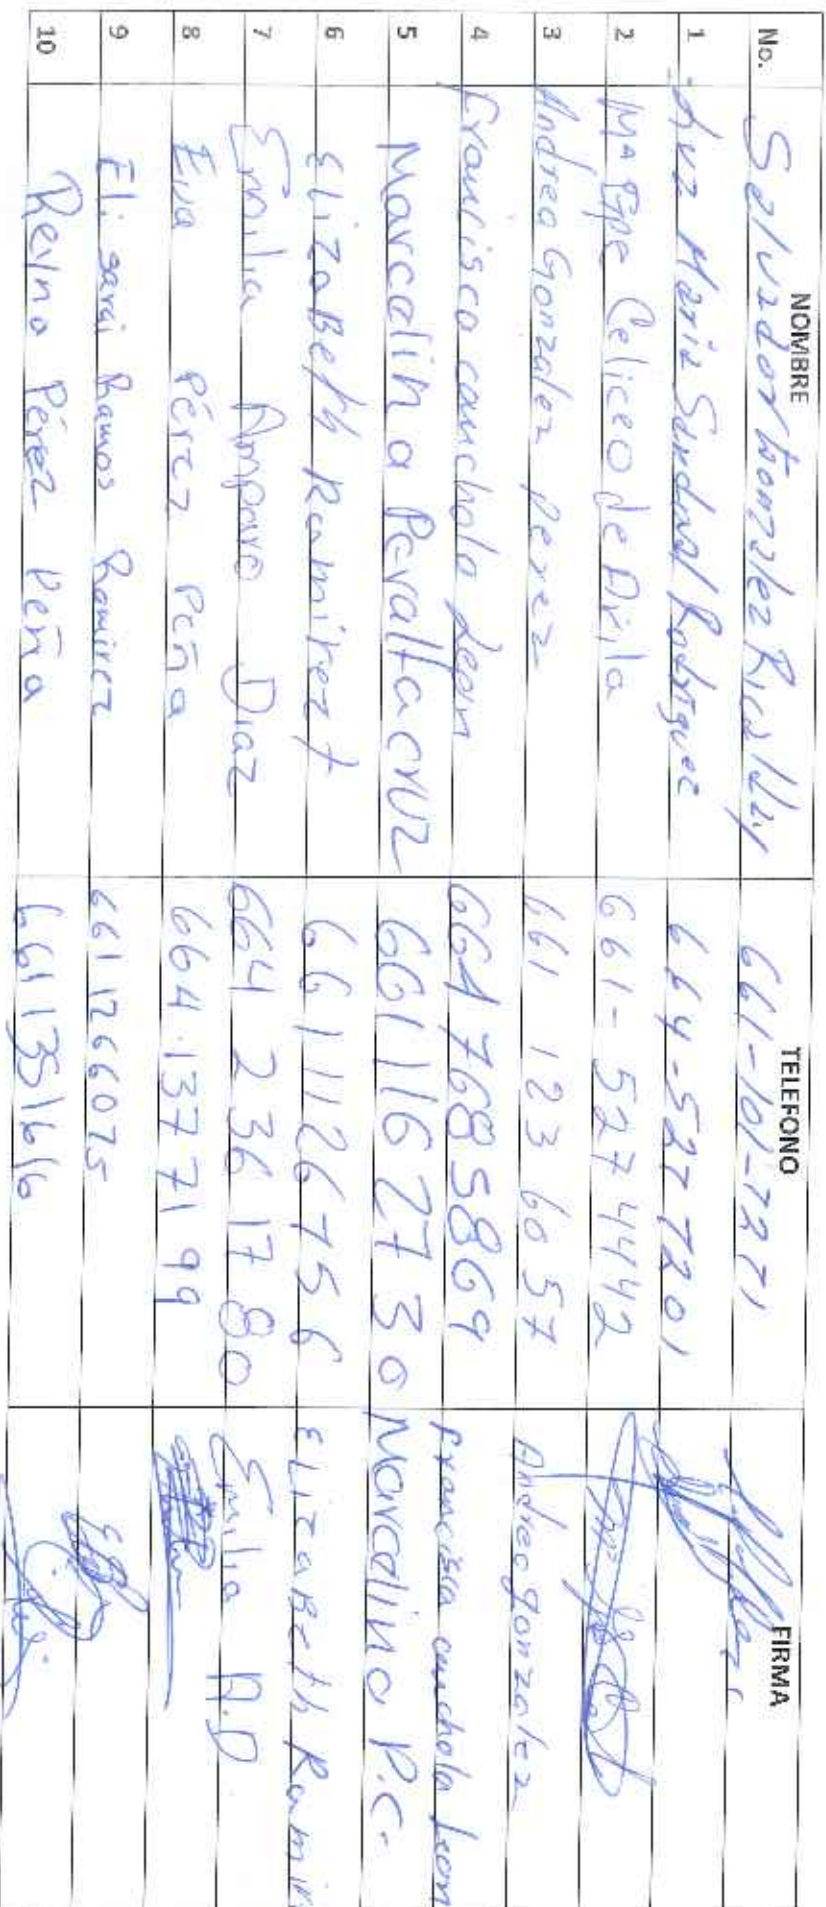 No. NOMBRE TELEFONO FIRMA
Salvador González Ricaldy 661-101-7271
1 Luz Maria Sandoval Rodriguez 664-527 7201
2 Ma Felipe Celiceo de Avila 661-527 4442
3 Andrea Gonzalez Perez 661 123 6057 Andrea gonzalez
4 Francisca canchola Leon 664 7685869 Francisca canchola Leon
5 Marcelina Peralta cruz 6611162730 Marcelina P.C.
6 ElizaBeth Ramirez t 6611126756 ElizaBeth Ramir
7 Emilia Amparo Diaz 664 2361780 Emilia A.D
8 Eva Pérez Peña 664 137 71 99
9 Eli sarai Ramos Ramirez 6611266075
10 Reyna Pérez Peña 6611351616